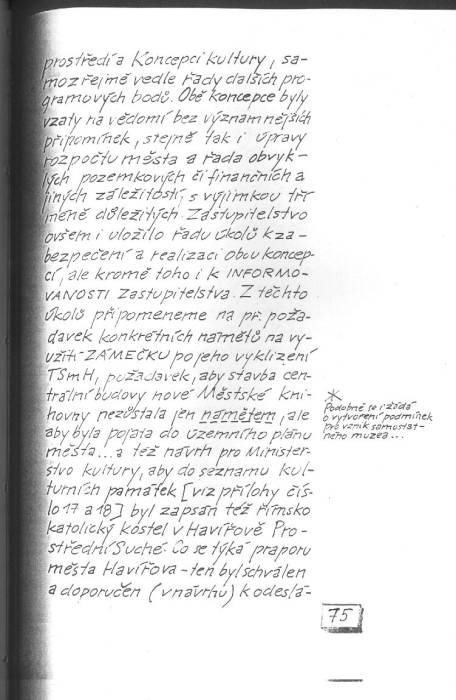 prostředí a Koncepci kultury, sa-
mozřejmě vedle řady dalších pro-
gramových bodů. Obě koncepce byly
vzaty na vědomí bez významnějších
připomínek, stejně tak i úpravy
rozpočtu města a řada obvyk-
lých pozemkových či finančních a
jiných záležitostí, s výjimkou tří
méně důležitých. Zastupitelstvo
ovšem i uložilo řadu úkolů k za-
bezpečení a realizaci obou koncep-
cí, ale kromě toho i k INFORMO-
VANOSTI Zastupitelstva. Z těchto
úkolů připomeneme na př. poža-
davek konkrétních námětů na vy-
užití ZÁMEČKU po jeho vyklizení
TSmH, požadavek, aby stavba cen-
trální budovy nové Městské kni-
hovny nezůstala jen námětem, ale
aby byla pojata do územního plánu
města... a též návrh pro Minister-
stvo kultury, aby do seznamu kul-
turních památek [viz přílohy čís-
lo 17 a 18] byl zapsán též římsko
katolický kostel v Havířově Pro-
střední Suché. Co se týká praporu
města Havířova - ten byl schválen
a doporučen (v návrhu) k odeslá-
*
Podobně se i žádá
o vytvoření podmínek
pro vznik samostat-
ného muzea...
75